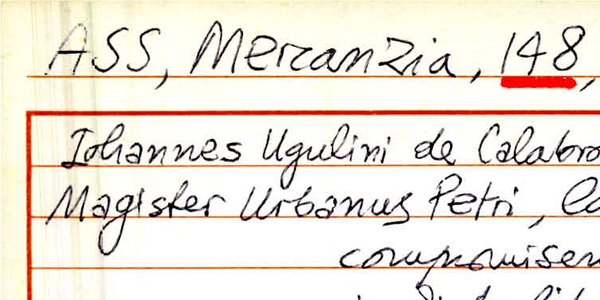 ASS, Mercanzia, 148,
Iohannes Ugulini de Calabro
Magister Urbanus Petri, la
compromiser